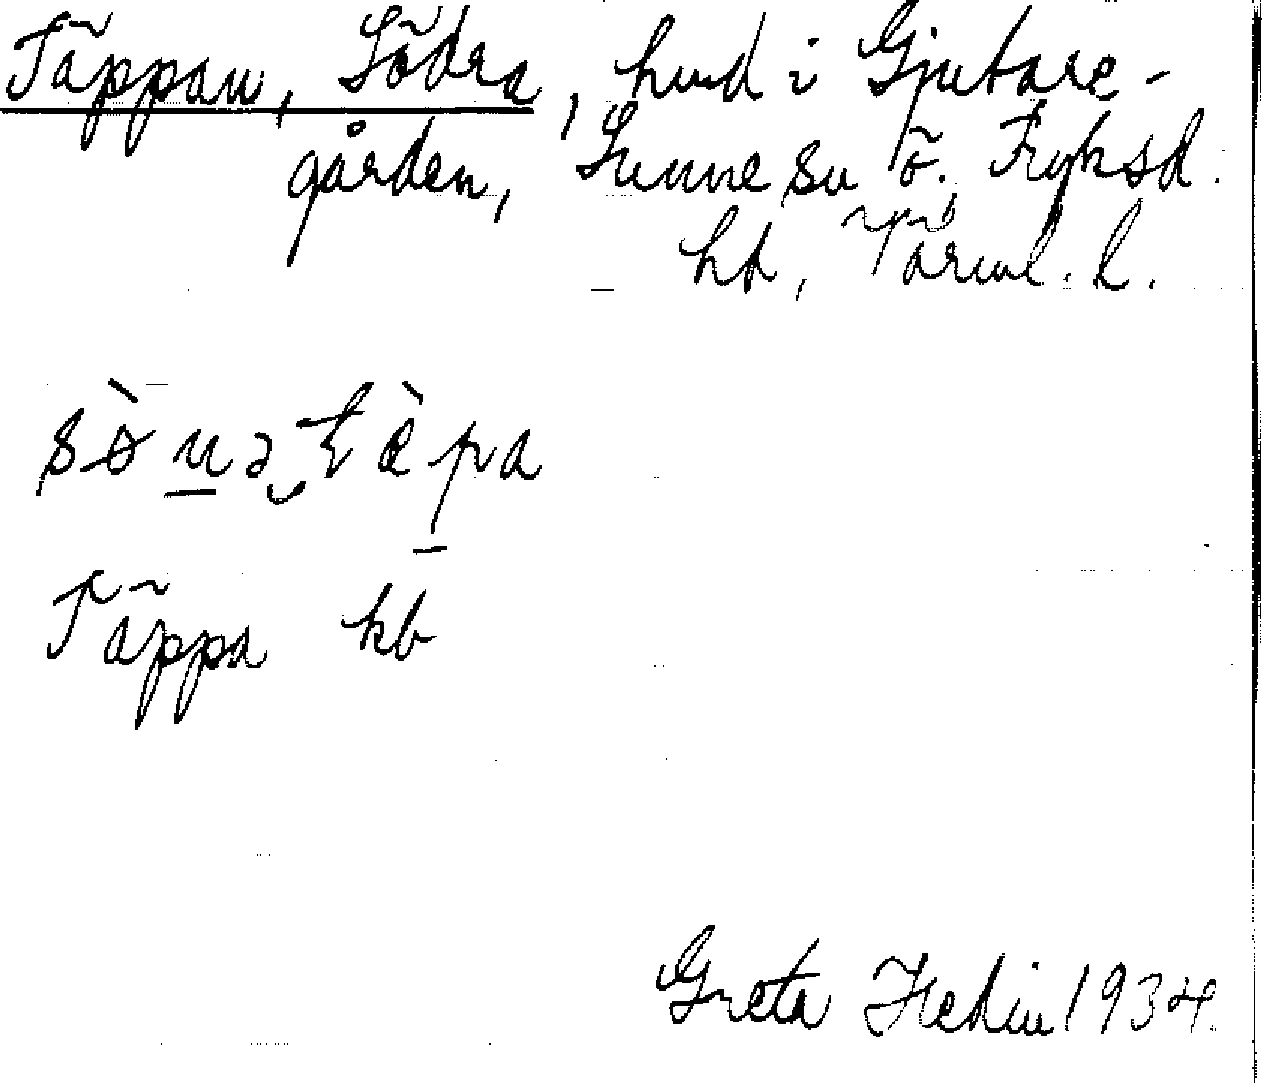 Täppan, Södra, hmd i Gjutare-
gården, Sunne sn Ö. Fryksd.
hd, Värml. l.
sø̀nə‿tæ̀pa
Täppa kb
Greta Hedin 1934.